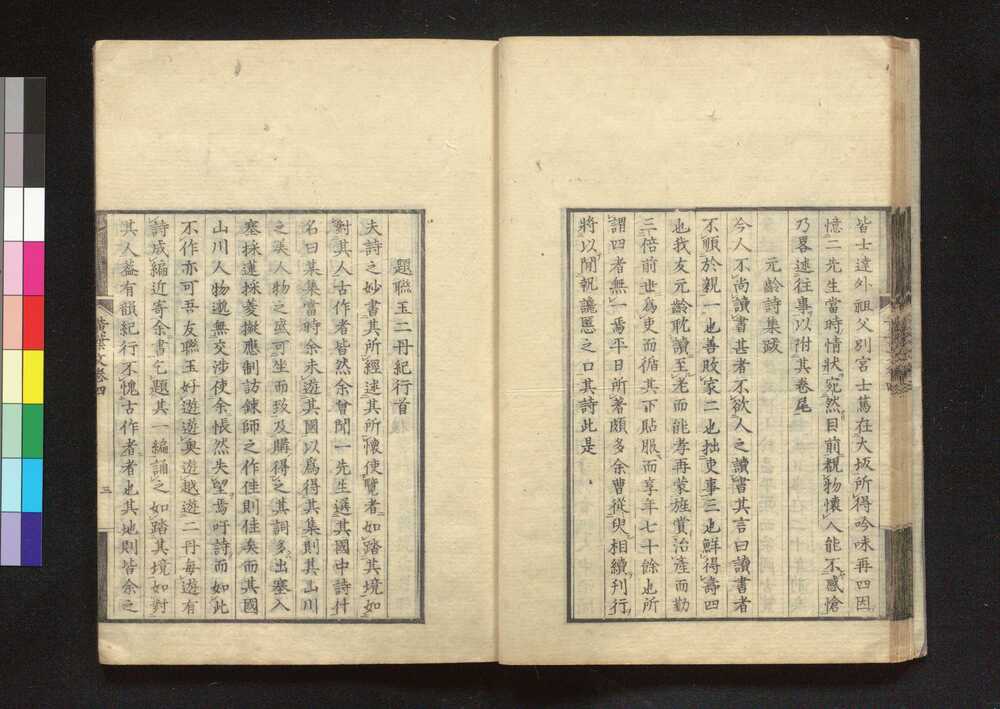 皆士達外祖父別宮士篤在大坂所得吟味再四因
憶二先生當時情状宛然目前覩物懷人能不感愴
乃畧述往事以附其卷尾
元齡詩集跋
今人不尚讀書甚者不欲人之讀書其言曰讀書者
不順於親一也善敗家二也拙吏事三也鮮得壽四
也我友元齡耽讀至老而能孝再蒙旌賞治產而勤
三倍前世爲吏而循其下貼服而享年七十餘也所
謂四者無一焉平日所著頗多余曹從臾相續刊行
將以閒執讒慝之口其詩此是
題聯玉二冊紀行首
夫詩之妙書其所經述其所懷使覽者如踏其境如
對其人古作者皆然余曾聞一先生選其國中詩什
名曰某集當時余未遊其國以爲得其集則其山川
之美人物之盛可坐而致及購得之其詞多出塞入
塞採蓮採菱擬應制訪錬師之作佳則佳矣而其國
山川人物邈無交渉使余悵然失望焉吁詩而如此
不作亦可吾友聯玉好遊遊奥遊越遊二丹每遊有
詩成編近寄余書乞題其一編誦之如踏其境如對
其人葢有韻紀行不愧古作者者也其地則皆余之
黄葉文卷四
三